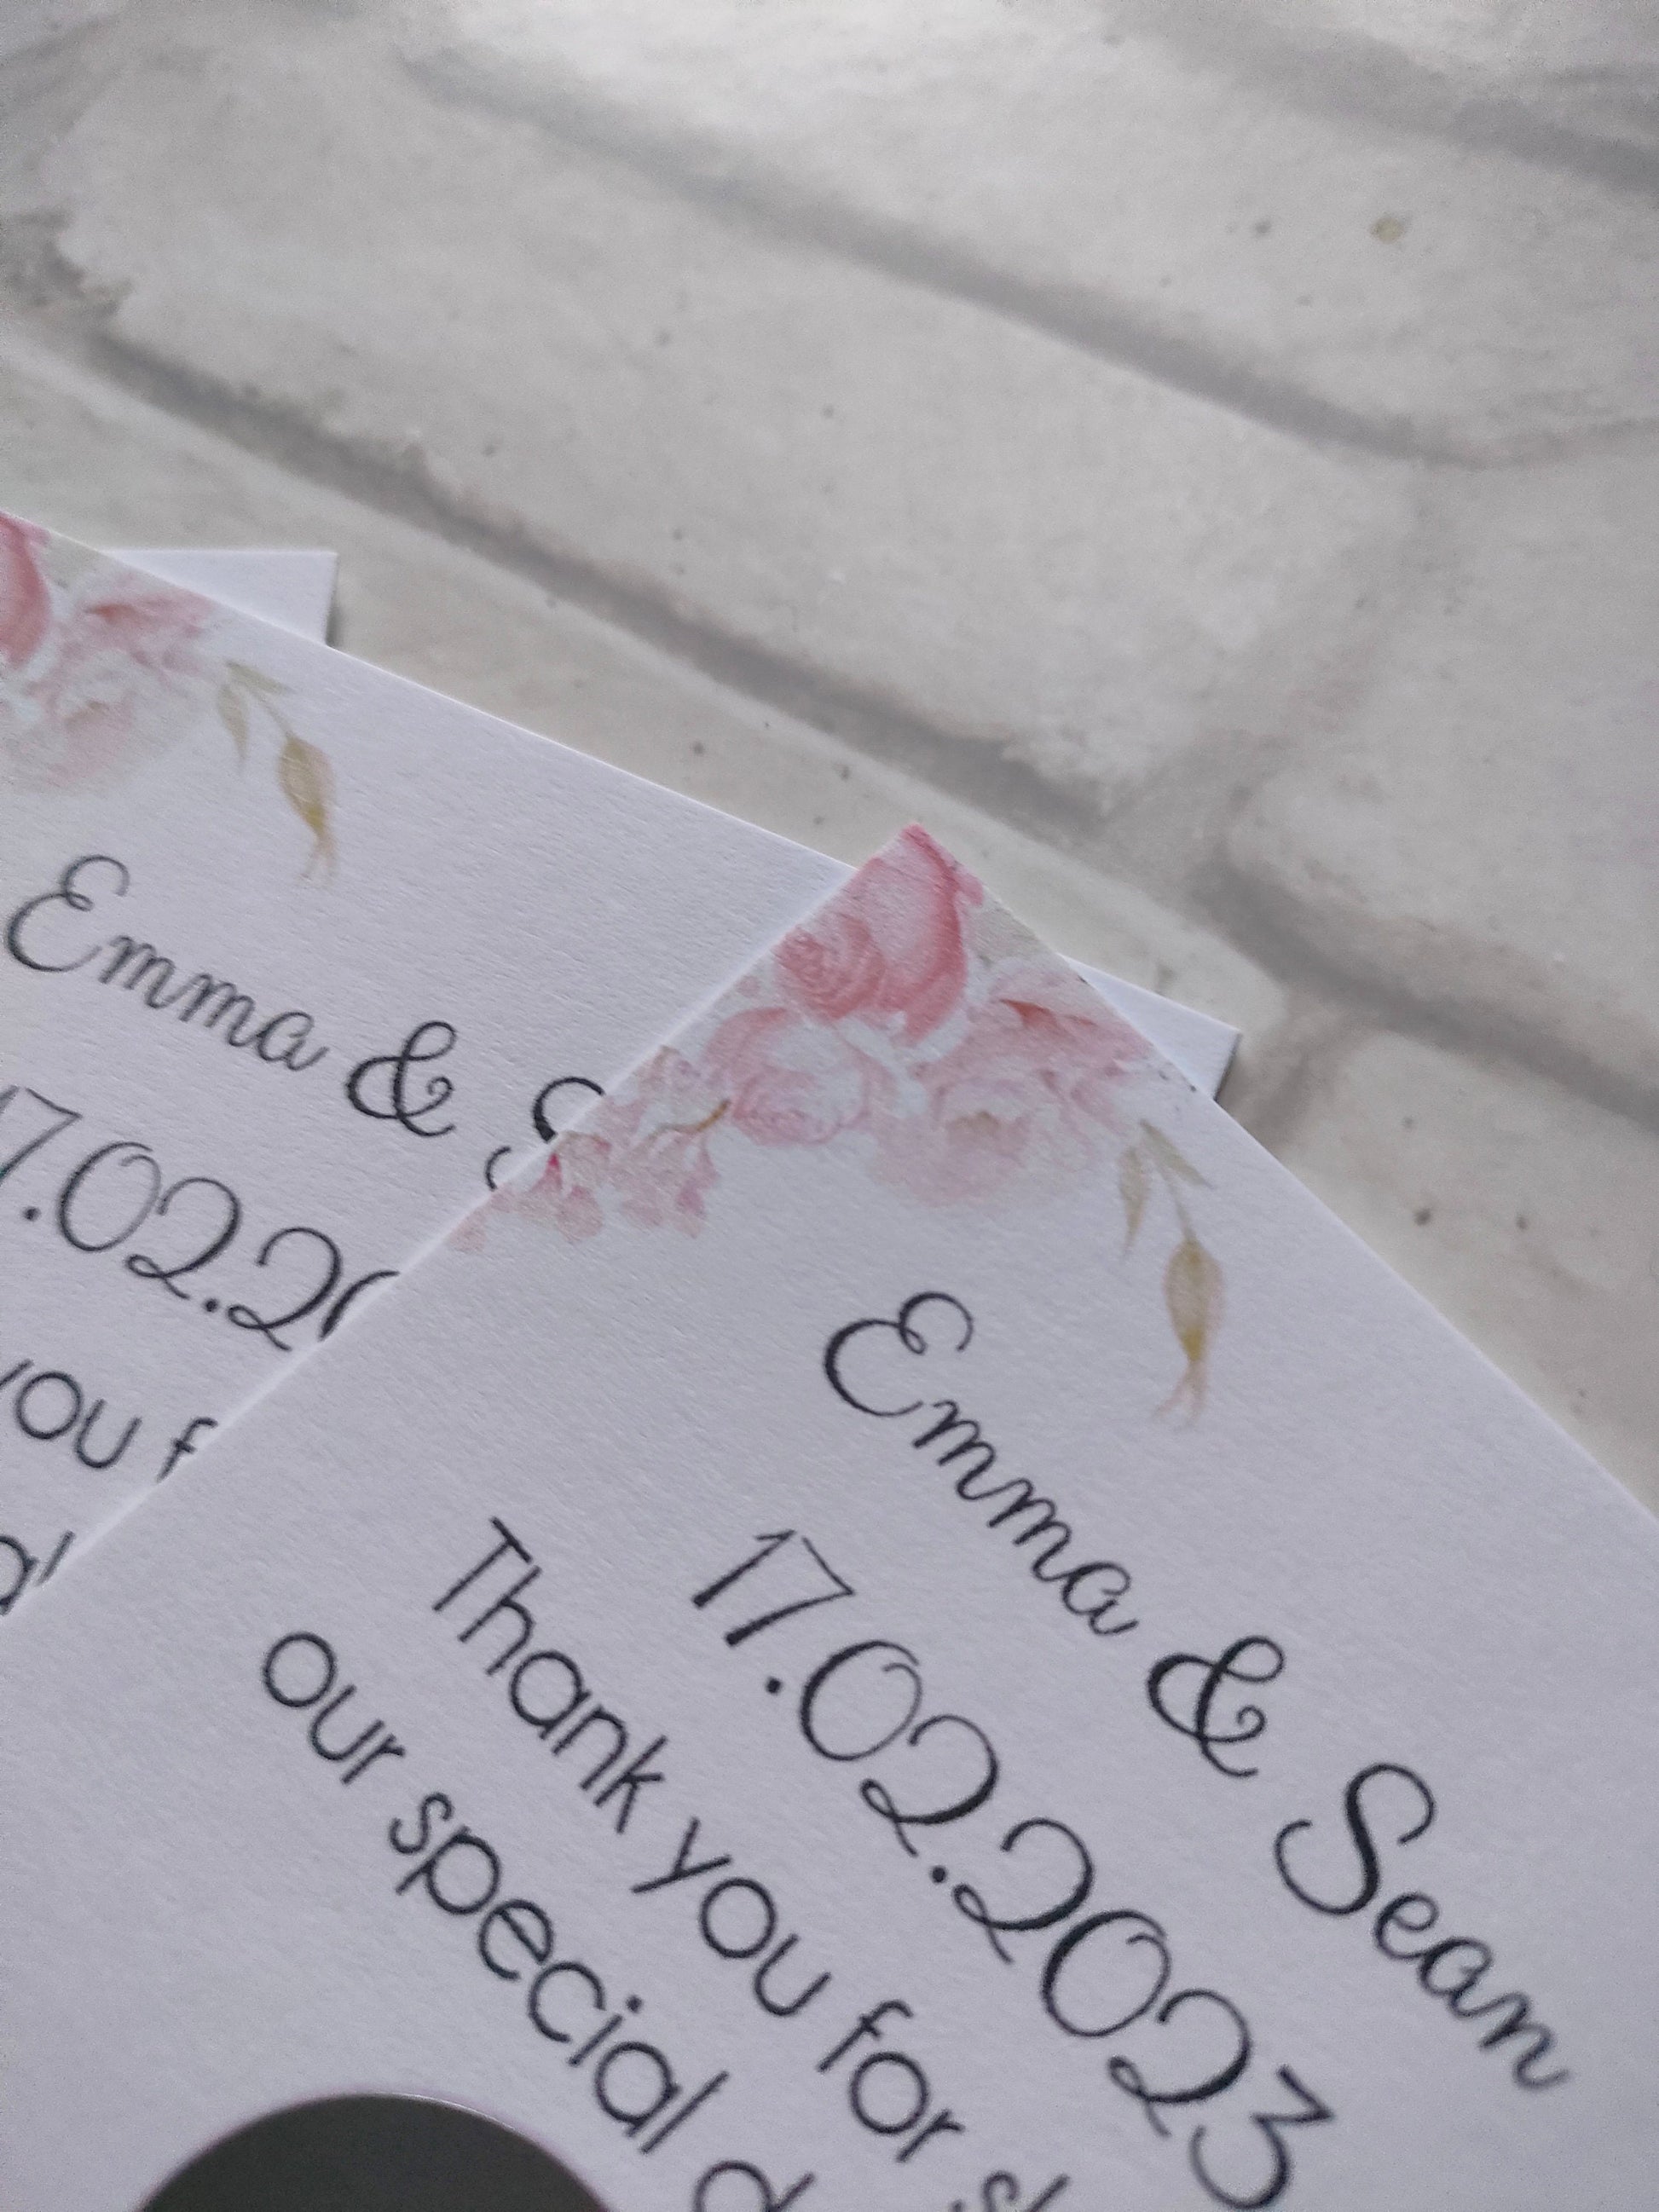 Emma &
17.02.2
you f
Emma & Sean
17.02.2023
Thank you for
our special